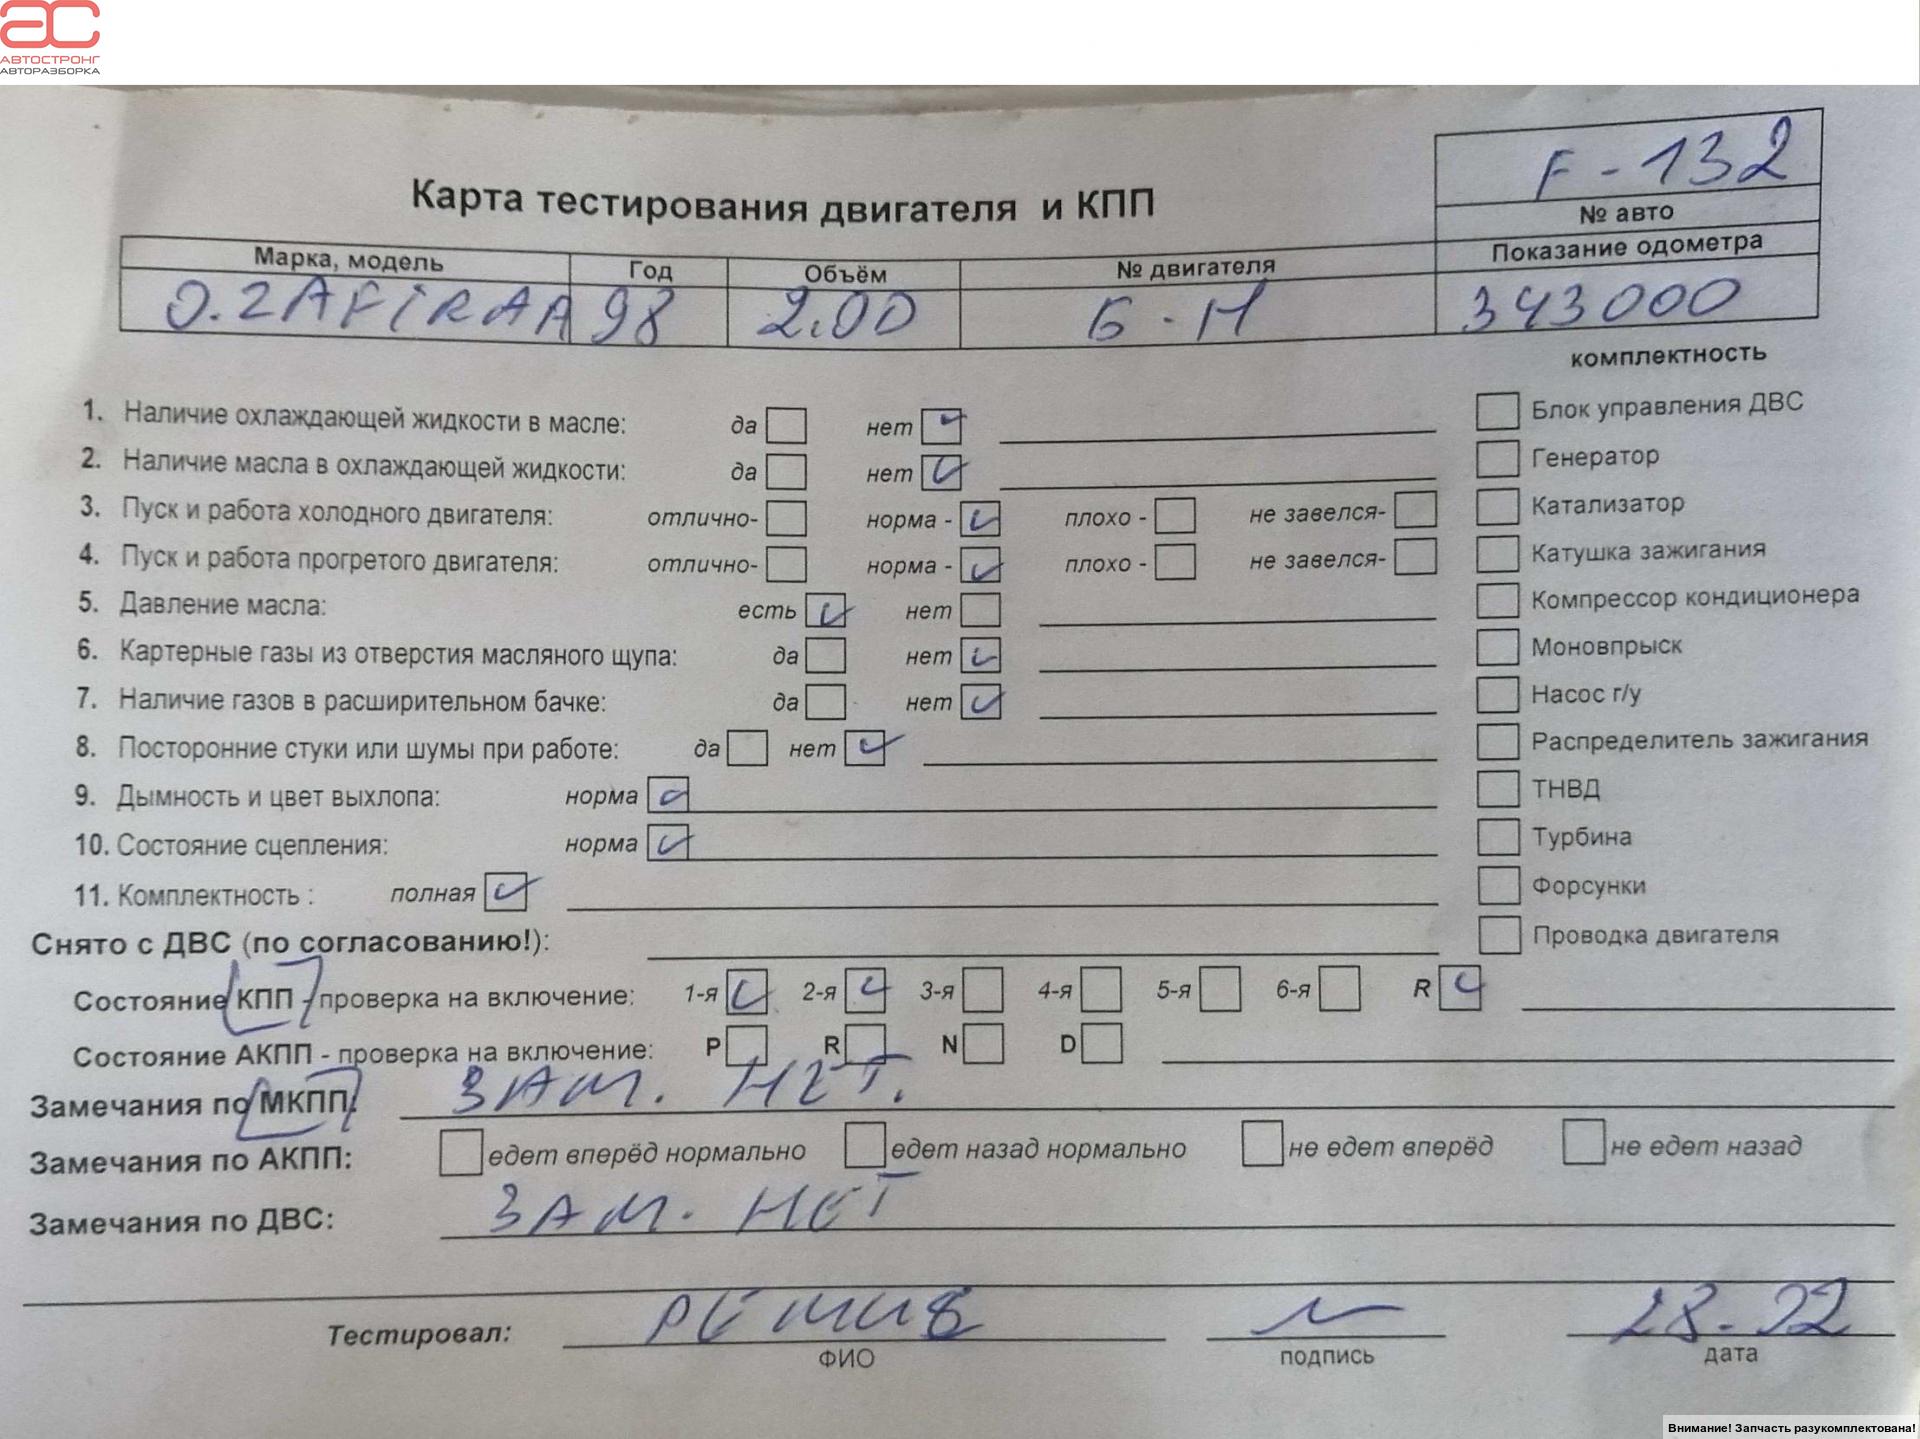 АС
АВТОСТРОНГ
АВТОРАЗБОРКА
F-132
№ авто
Карта тестирования двигателя и КПП
Марка, модель Год Объём № двигателя Показание одометра
O.ZAFIRAA 98 2.00 Б-Н 343000
комплектность
1. Наличие охлаждающей жидкости в масле: да нет
2. Наличие масла в охлаждающей жидкости: да нет
3. Пуск и работа холодного двигателя: отлично- норма - плохо - не завелся-
4. Пуск и работа прогретого двигателя: отлично- норма - плохо - не завелся-
5. Давление масла: есть нет
6. Картерные газы из отверстия масляного щупа: да нет
7. Наличие газов в расширительном бачке: да нет
8. Посторонние стуки или шумы при работе: да нет
9. Дымность и цвет выхлопа: норма
10. Состояние сцепления: норма
11. Комплектность : полная
Блок управления ДВС
Генератор
Катализатор
Катушка зажигания
Компрессор кондиционера
Моновпрыск
Насос г/у
Распределитель зажигания
ТНВД
Турбина
Форсунки
Проводка двигателя
Снято с ДВС (по согласованию!):
Состояние КПП - проверка на включение: 1-я 2-я 3-я 4-я 5-я 6-я R
Состояние АКПП - проверка на включение: P R N D
Замечания по МКПП: ЗАМ. НЕТ.
Замечания по АКПП: едет вперёд нормально едет назад нормально не едет вперёд не едет назад
Замечания по ДВС: ЗАМ. НЕТ
Тестировал:
ФИО подпись дата
Внимание! Запчасть разукомплектована!